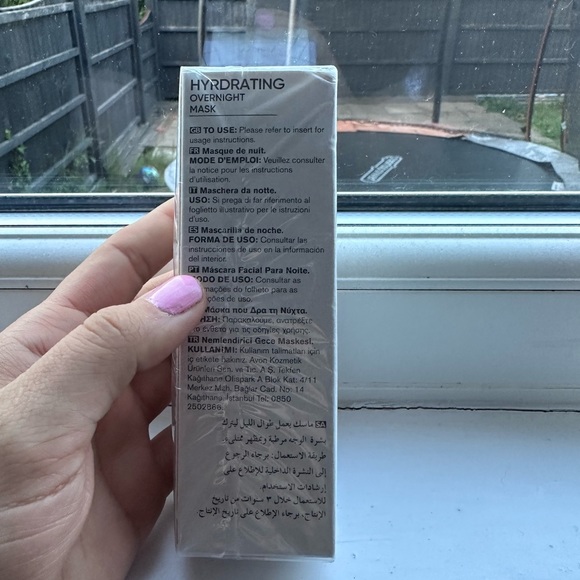 HYRDRATING
OVERNIGHT
MASK
GB TO USE: Please refer to insert for
usage instructions.
FR Masque de nuit.
MODE D'EMPLOI: Veuillez consulter
la notice pour les instructions
d'utilisation.
IT Maschera da notte.
USO: Si prega di far riferimento al
foglietto illustrativo per le istruzioni
d'uso.
ES Mascarilla de noche.
FORMA DE USO: Consultar las
instrucciones de uso en la información
del interior.
PT Máscara Facial Para Noite.
MODO DE USO: Consultar as
informações do folheto para as
de uso.
Μάσκα που Δρα τη Νύχτα.
Παρακαλούμε, ανατρέξτε
ένθετο για τις οδηγίες χρήσης.
TR Nemlendirici Gece Maskesi.
KULLANIMI: Kullanım talimatları için
iç etikete bakınız. Avon Kozmetik
Ürünleri San. ve Tic. A.Ş. Tekfen
Kağıthane Ofispark A Blok Kat: 4/11
Merkez Mah. Bağlar Cad. No: 14
Kağıthane, İstanbul Tel: 0850
2502866
SA ماسك يعمل طوال الليل ليترك
بشرة الوجه مرطبة وبمظهر ممتلىء.
طريقة الاستعمال: برجاء الرجوع
إلى النشرة الداخلية للإطلاع على
إرشادات الاستخدام.
للاستعمال خلال ٣ سنوات من تاريخ
الإنتاج. برجاء الإطلاع على تاريخ الإنتاج